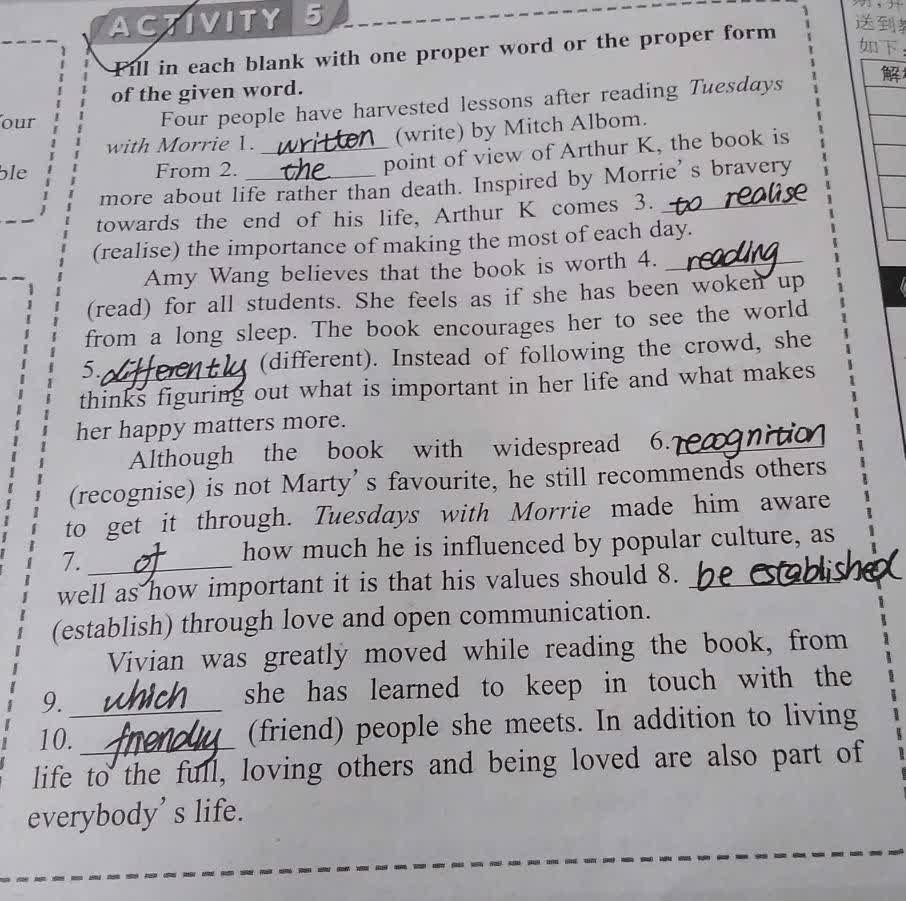 ACTIVITY 5
Fill in each blank with one proper word or the proper form
of the given word.
Four people have harvested lessons after reading Tuesdays
with Morrie 1. written (write) by Mitch Albom.
From 2. the point of view of Arthur K, the book is
more about life rather than death. Inspired by Morrie's bravery
towards the end of his life, Arthur K comes 3. to realise
(realise) the importance of making the most of each day.
Amy Wang believes that the book is worth 4. reading
(read) for all students. She feels as if she has been woken up
from a long sleep. The book encourages her to see the world
5. differently (different). Instead of following the crowd, she
thinks figuring out what is important in her life and what makes
her happy matters more.
Although the book with widespread 6. recognition
(recognise) is not Marty's favourite, he still recommends others
to get it through. Tuesdays with Morrie made him aware
7. of how much he is influenced by popular culture, as
well as how important it is that his values should 8. be established
(establish) through love and open communication.
Vivian was greatly moved while reading the book, from
9. which she has learned to keep in touch with the
10. friendly (friend) people she meets. In addition to living
life to the full, loving others and being loved are also part of
everybody's life.
our
ble
送到
如下: